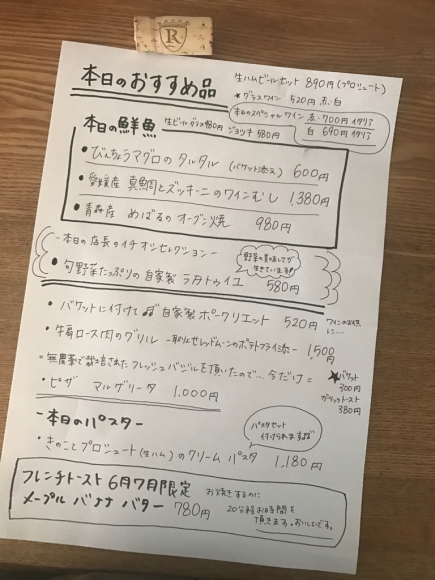 R
本日のおすすめ品
生ハムビールセット 890円(プロシュート)
★グラスワイン 520円 赤・白
本日のスペシャルワイン 赤・700円 イタリア
白 690円 イタリア
本日の鮮魚
生ビール グラス480円 ジョッキ580円
●びんちょうマグロのタルタル(バケット添え) 600円
●愛媛産 真鯛とズッキーニのワインむし 1,380円
●青森産 めばるのオーブン焼 980円
-本日の店長のイチオシセレクション-
野菜の美味しさが
生きています!
●旬野菜たっぷりの自家製ラタトゥイユ 580円
・バケットに付けて 自家製ポークリエット 520円
ワインのお供に....
・牛肩ロース肉のグリル -取りたてレッドムーンのポテトフライ添え- 1,500円
=無農薬で栽培されたフレッシュバジルを頂いたので…今だけ=
★バケット
300円
ガーリックトースト
380円
・ピザ マルゲリータ 1,000円
-本日のパスタ-
パスタセット
付けられます
・きのことプロシュート(生ハム)のクリームパスタ 1,180円
フレンチトースト 6月7月限定
メープル バナナ バター 780円
お焼きするのに
20分程お時間を
頂きます。おいしいです。